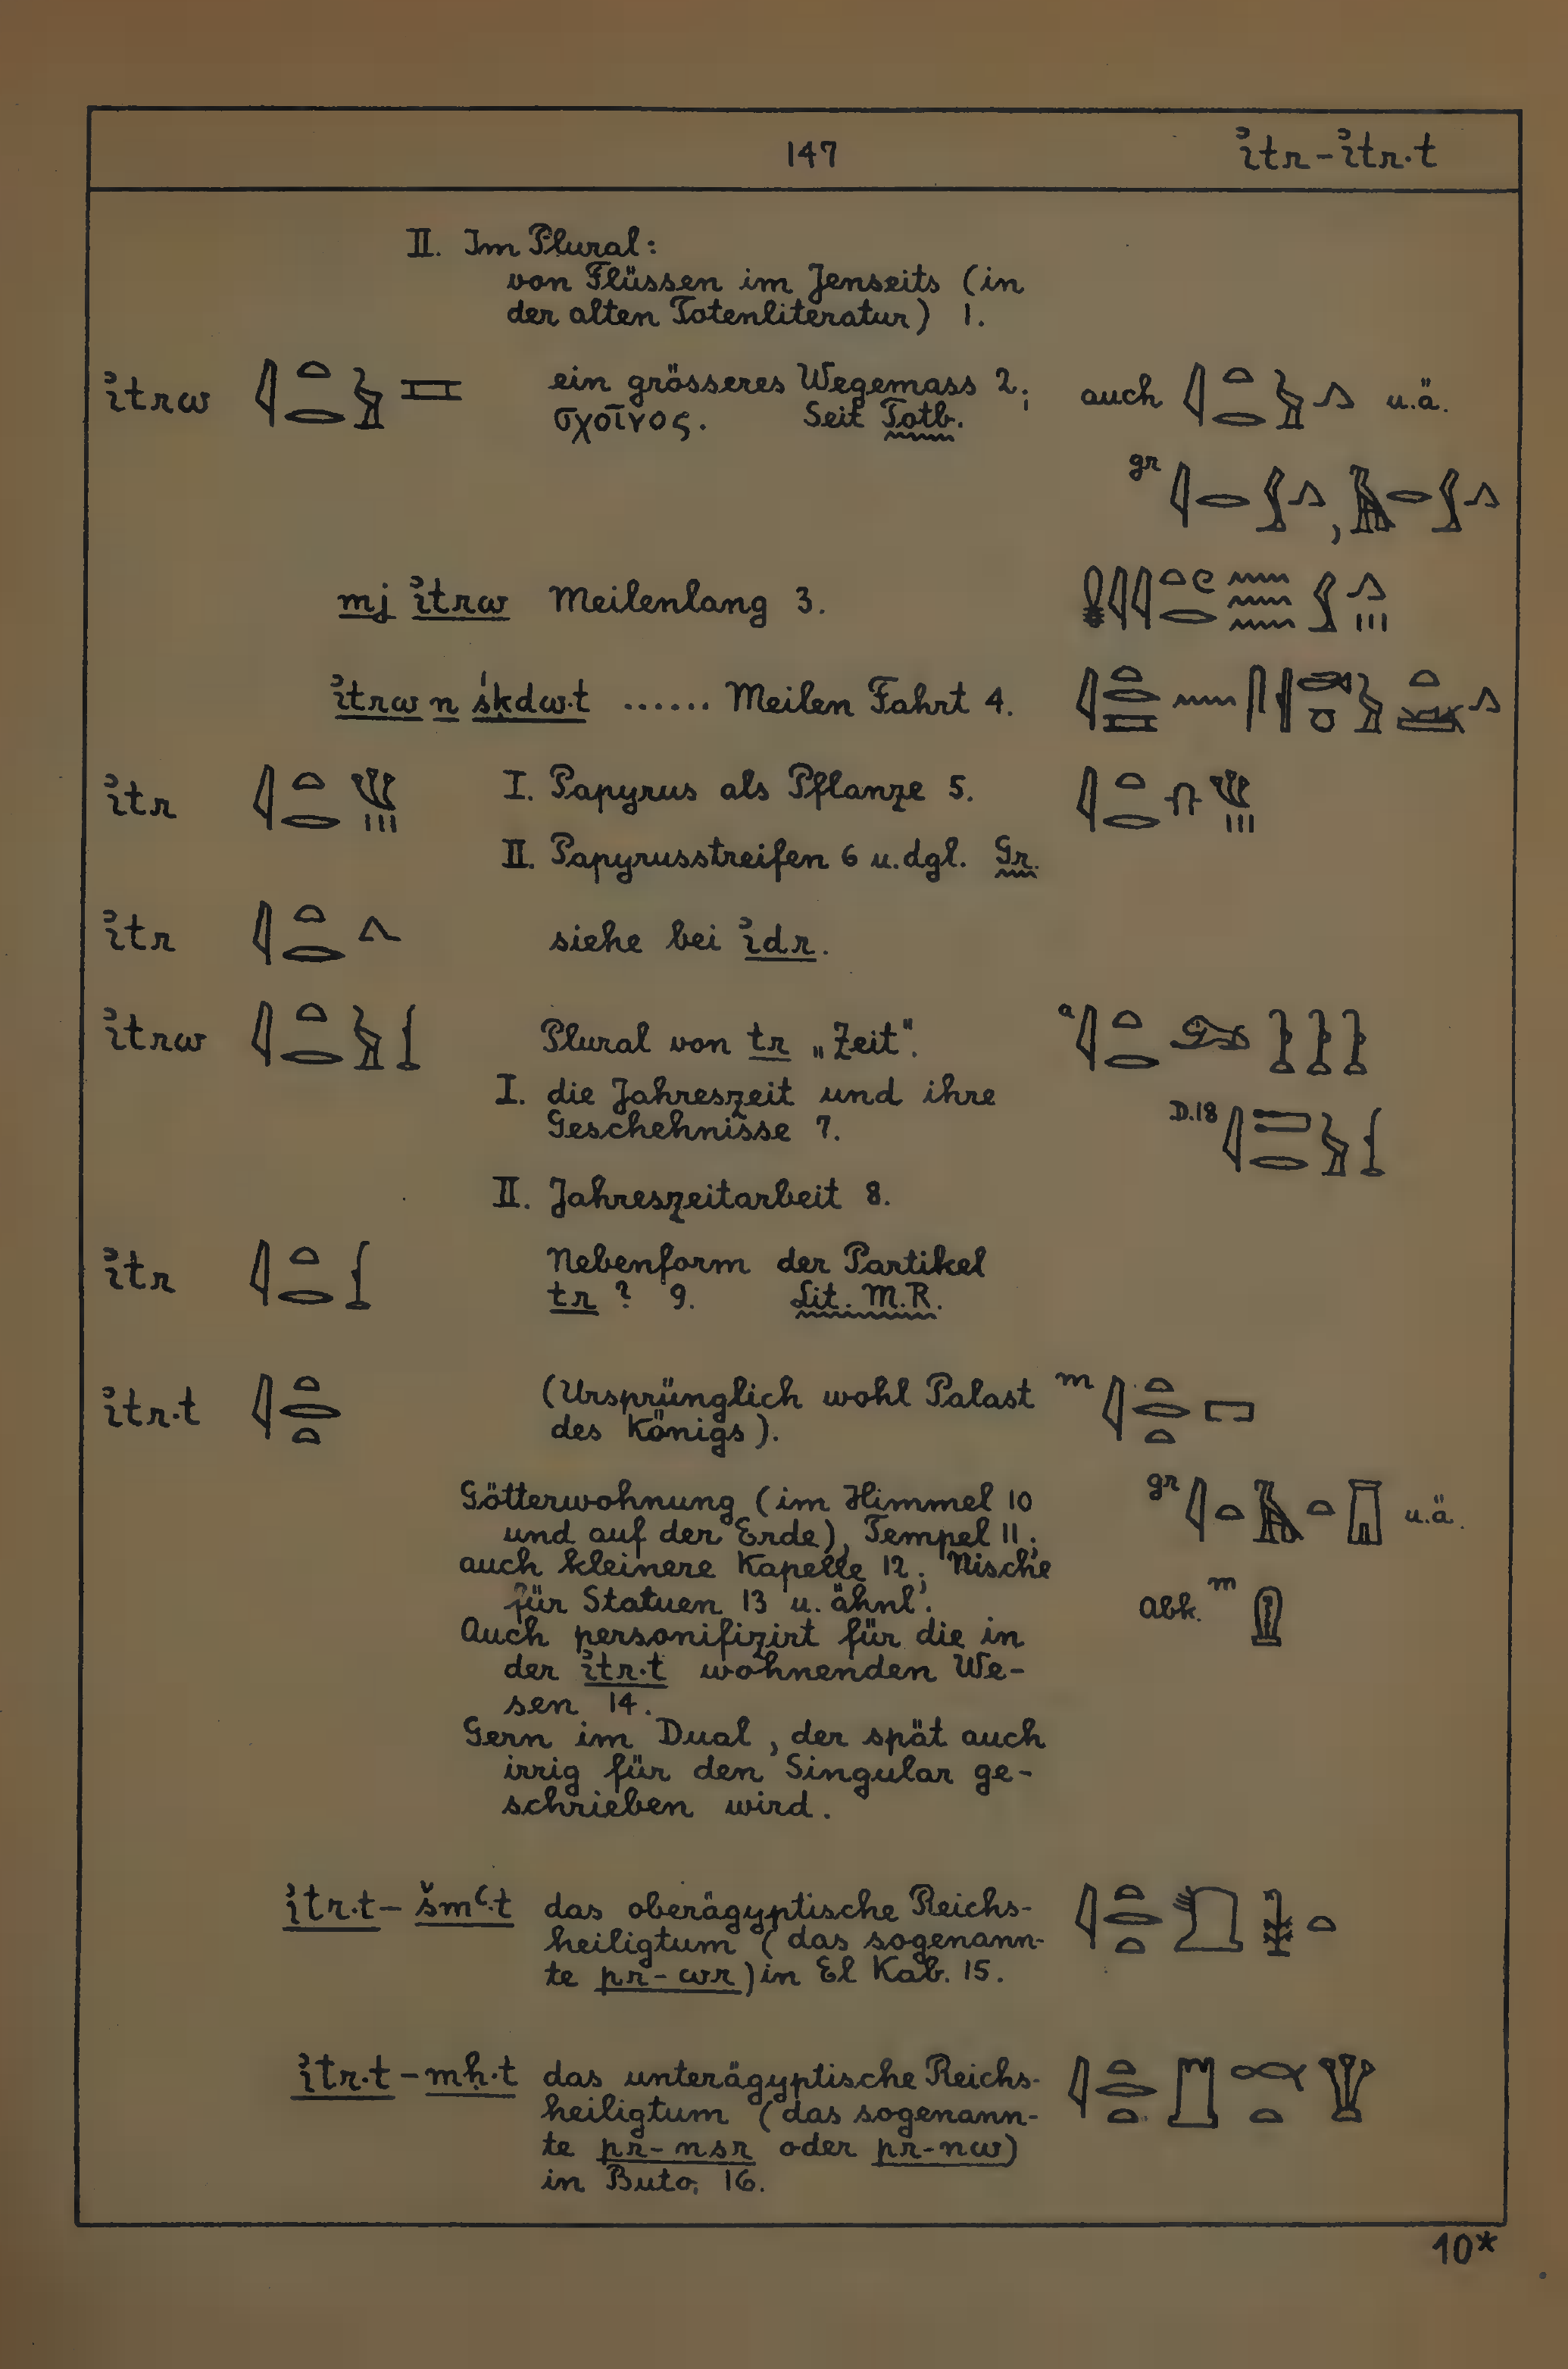 147
ı͗tr - ı͗tr·t
II. Im Plural:
von Flüssen im Jenseits (in
der alten Totenliteratur) 1.
ı͗trw ein grösseres Wegemass 2; auch u.ä.
σχοῖνος. Seit Totb.
gr ,
mj ı͗trw Meilenlang 3.
ı͗trw n śḳdw·t ...... Meilen Fahrt 4.
ı͗tr I. Papyrus als Pflanze 5.
II. Papyrusstreifen 6 u. dgl. Gr.
ı͗tr siehe bei ı͗dr.
ı͗trw Plural von tr „Zeit". a
I. die Jahreszeit und ihre
Geschehnisse 7. D.18
II. Jahreszeitarbeit 8.
ı͗tr Nebenform der Partikel
tr ? 9. Lit. M.R.
ı͗tr·t (Ursprünglich wohl Palast m
des Königs).
Götterwohnung (im Himmel 10 gr u.ä.
und auf der Erde), Tempel 11;
auch kleinere Kapelle 12; Nische
für Statuen 13 u. ähnl. Abk. m
Auch personifizirt für die in
der ı͗tr·t wohnenden We-
sen 14.
Gern im Dual, der spät auch
irrig für den Singular ge-
schrieben wird.
ı͗tr·t - šmꜥ·t das oberägyptische Reichs-
heiligtum (das sogenann-
te pr-wr) in El Kab. 15.
ı͗tr·t - mḥ·t das unterägyptische Reichs-
heiligtum (das sogenann-
te pr-nsr oder pr-nw)
in Buto; 16.
10*